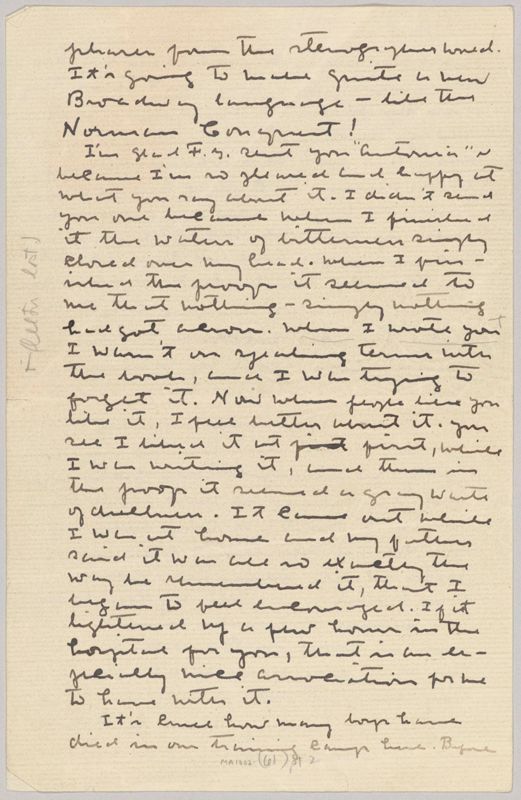 phrases from the stenographers word.
It's going to make quite a new
Broadway language – like the
Norman Conquest!
I'm glad F.G. sent you "Antonia" &
because I'm so pleased and happy at
what you say about it. I didn't send
you one because when I finished
it the waters of bitterness simply
closed over my head. When I fin-
ished the proofs it seemed to
me that nothing – simply nothing
had got across. When I wrote you +
I wasn't on speaking terms with
the book, and I was trying to
forget it. Now when people like you
like it, I feel better about it. You
see I liked it at first, while
I was writing it, and then in
the proofs it seemed a gray waste
of dullness. It came out while
I was at home and my father
said it was all so exactly the
way he remembered it, that I
began to feel encouraged. If it
lightened by a few hours in the
hospital for you, that is an es-
pecially nice association for me
to have with it.
It's cruel how many boys have
died in our training camps here. Before
+ (letter lost)
MA 1602 (61) p. 2